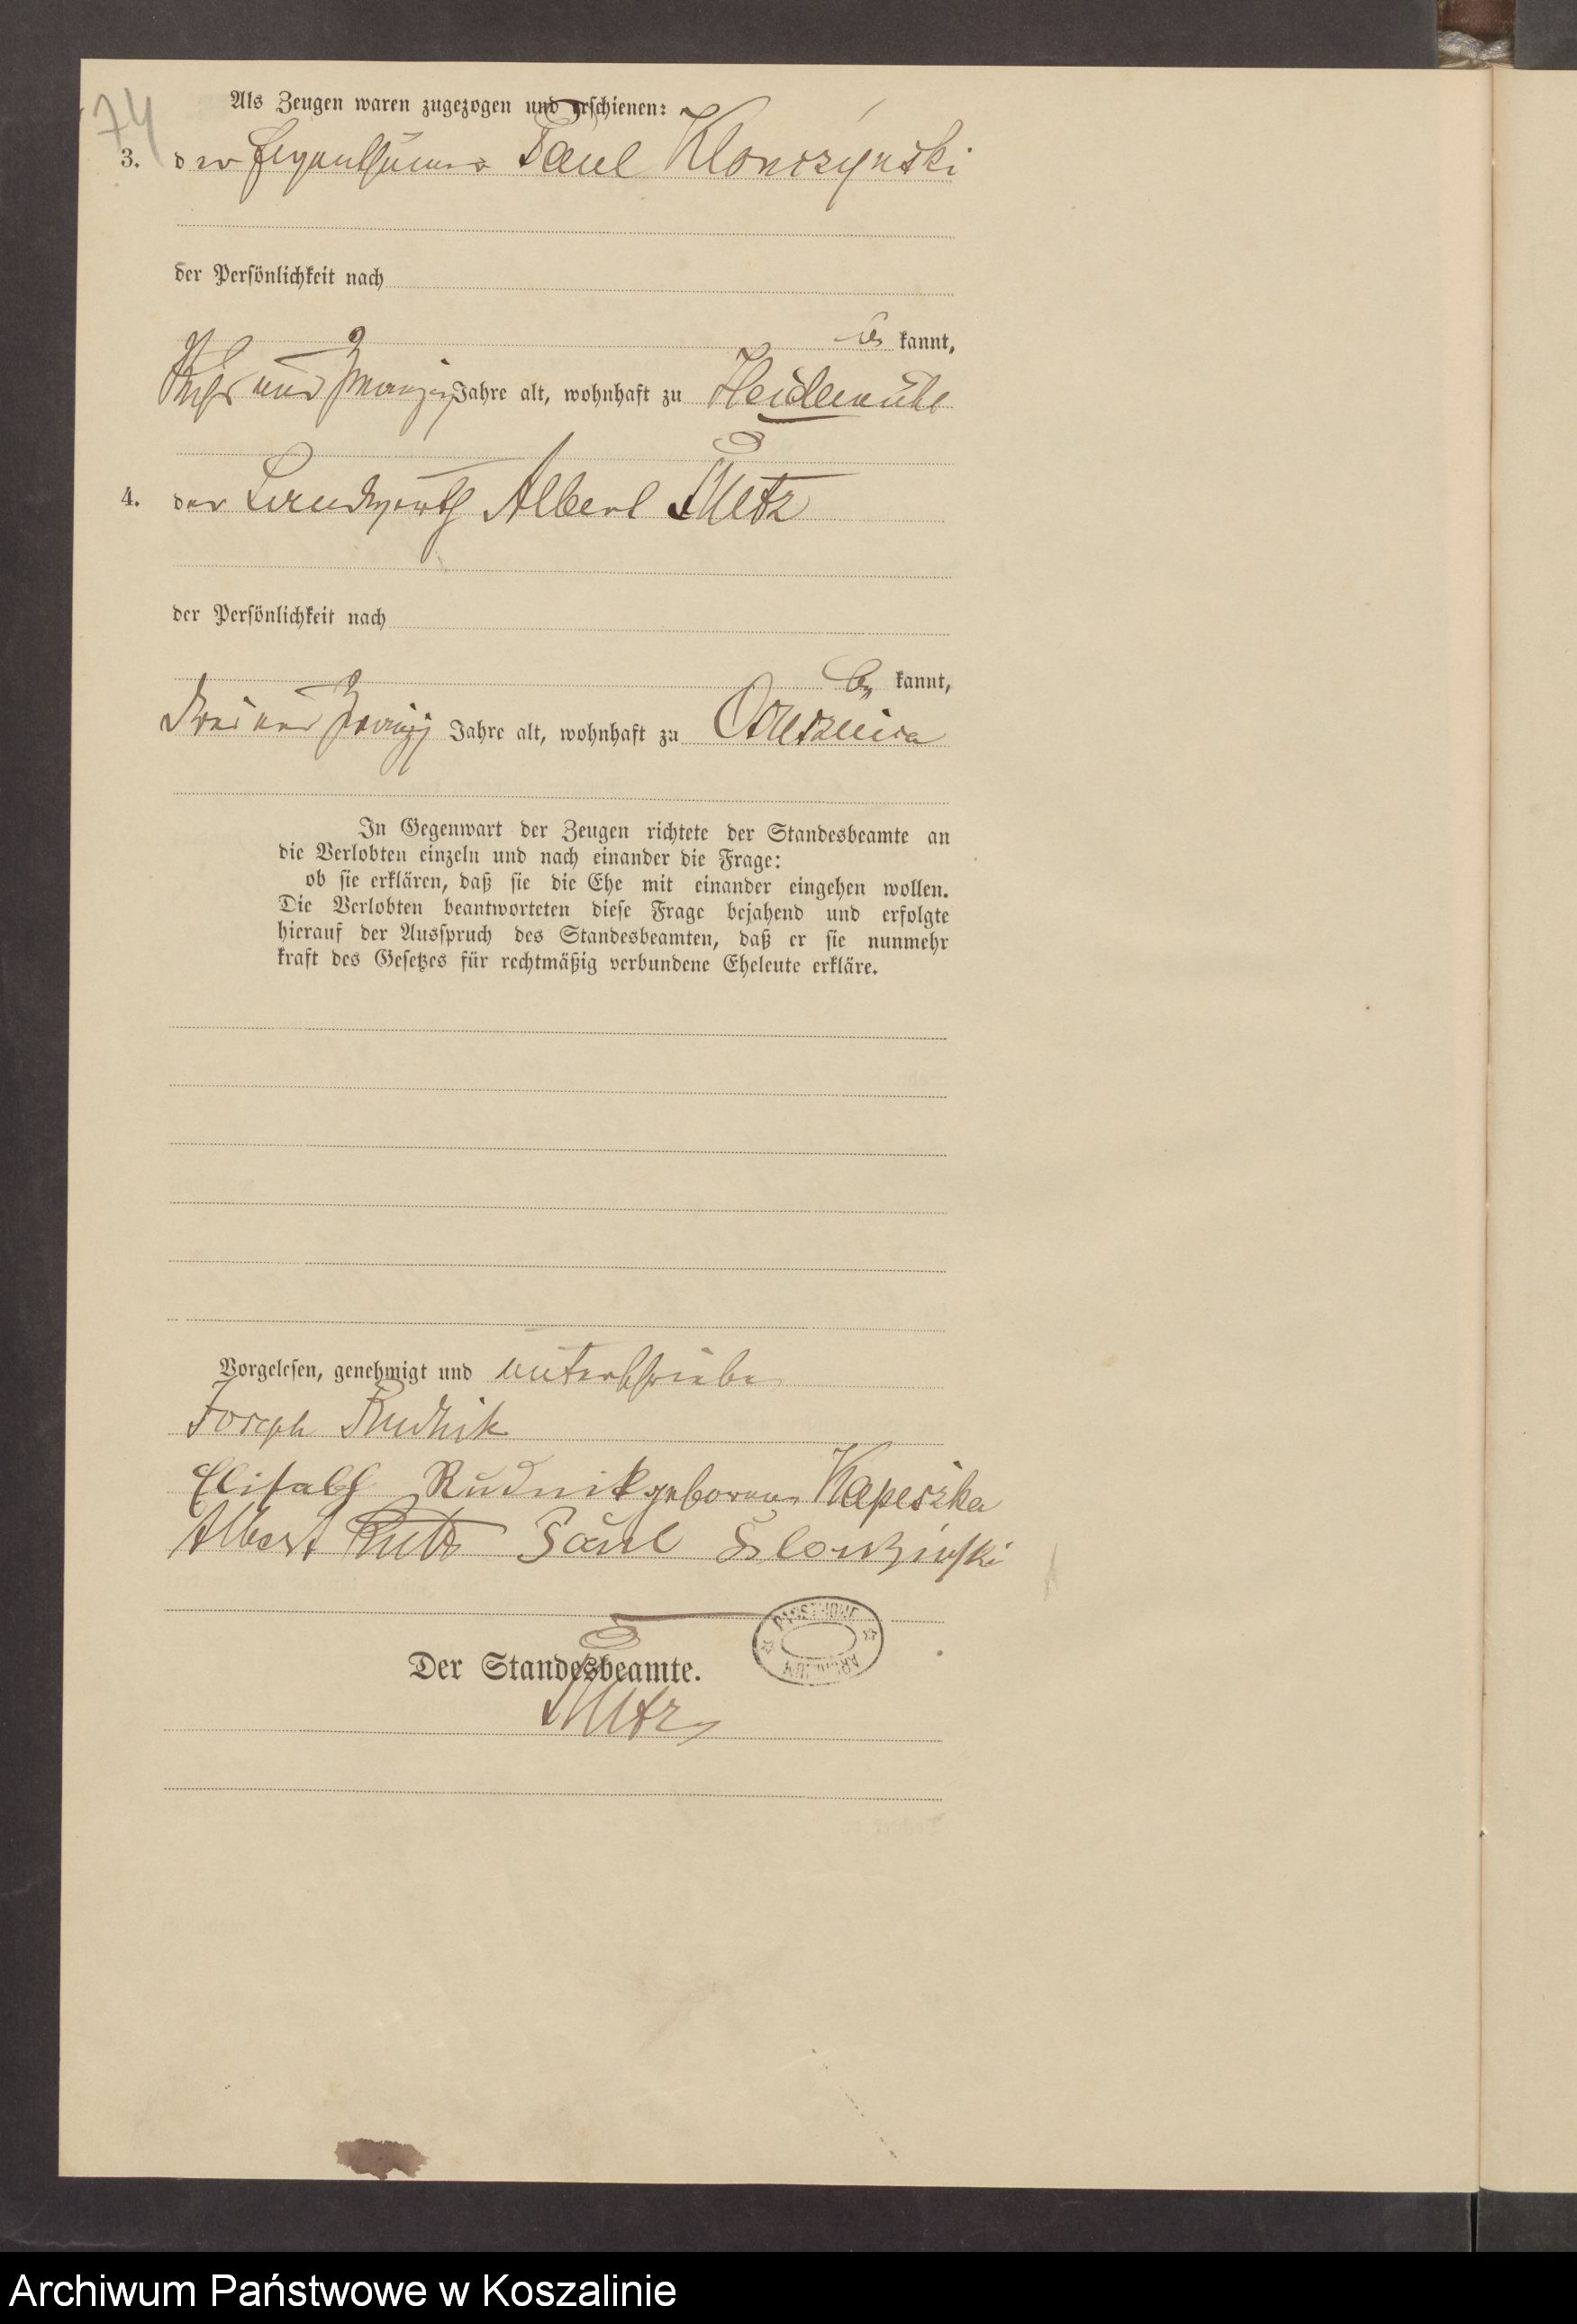 74
Als Zeugen waren zugezogen und erschienen:
3. der Eigenthümer Paul Klonczynski
der Persönlichkeit nach
be kannt,
Sechs und zwanzig Jahre alt, wohnhaft zu Heidemühl
4. der Landwirth Albert Rutz
der Persönlichkeit nach
be kannt,
Drei und zwanzig Jahre alt, wohnhaft zu
In Gegenwart der Zeugen richtete der Standesbeamte an
die Verlobten einzeln und nach einander die Frage:
ob sie erklären, daß sie die Ehe mit einander eingehen wollen.
Die Verlobten beantworteten diese Frage bejahend und erfolgte
hierauf der Ausspruch des Standesbeamten, daß er sie nunmehr
kraft des Gesetzes für rechtmäßig verbundene Eheleute erkläre.
Vorgelesen, genehmigt und unterschrieben
Joseph Rudnik
Elisabeth Rudnik geborene Kapeszka
Albert Rutz Paul Klonzinski
Der Standesbeamte.
PAŃSTWOWE
ARCHIWUM
Rutz
Archiwum Państwowe w Koszalinie